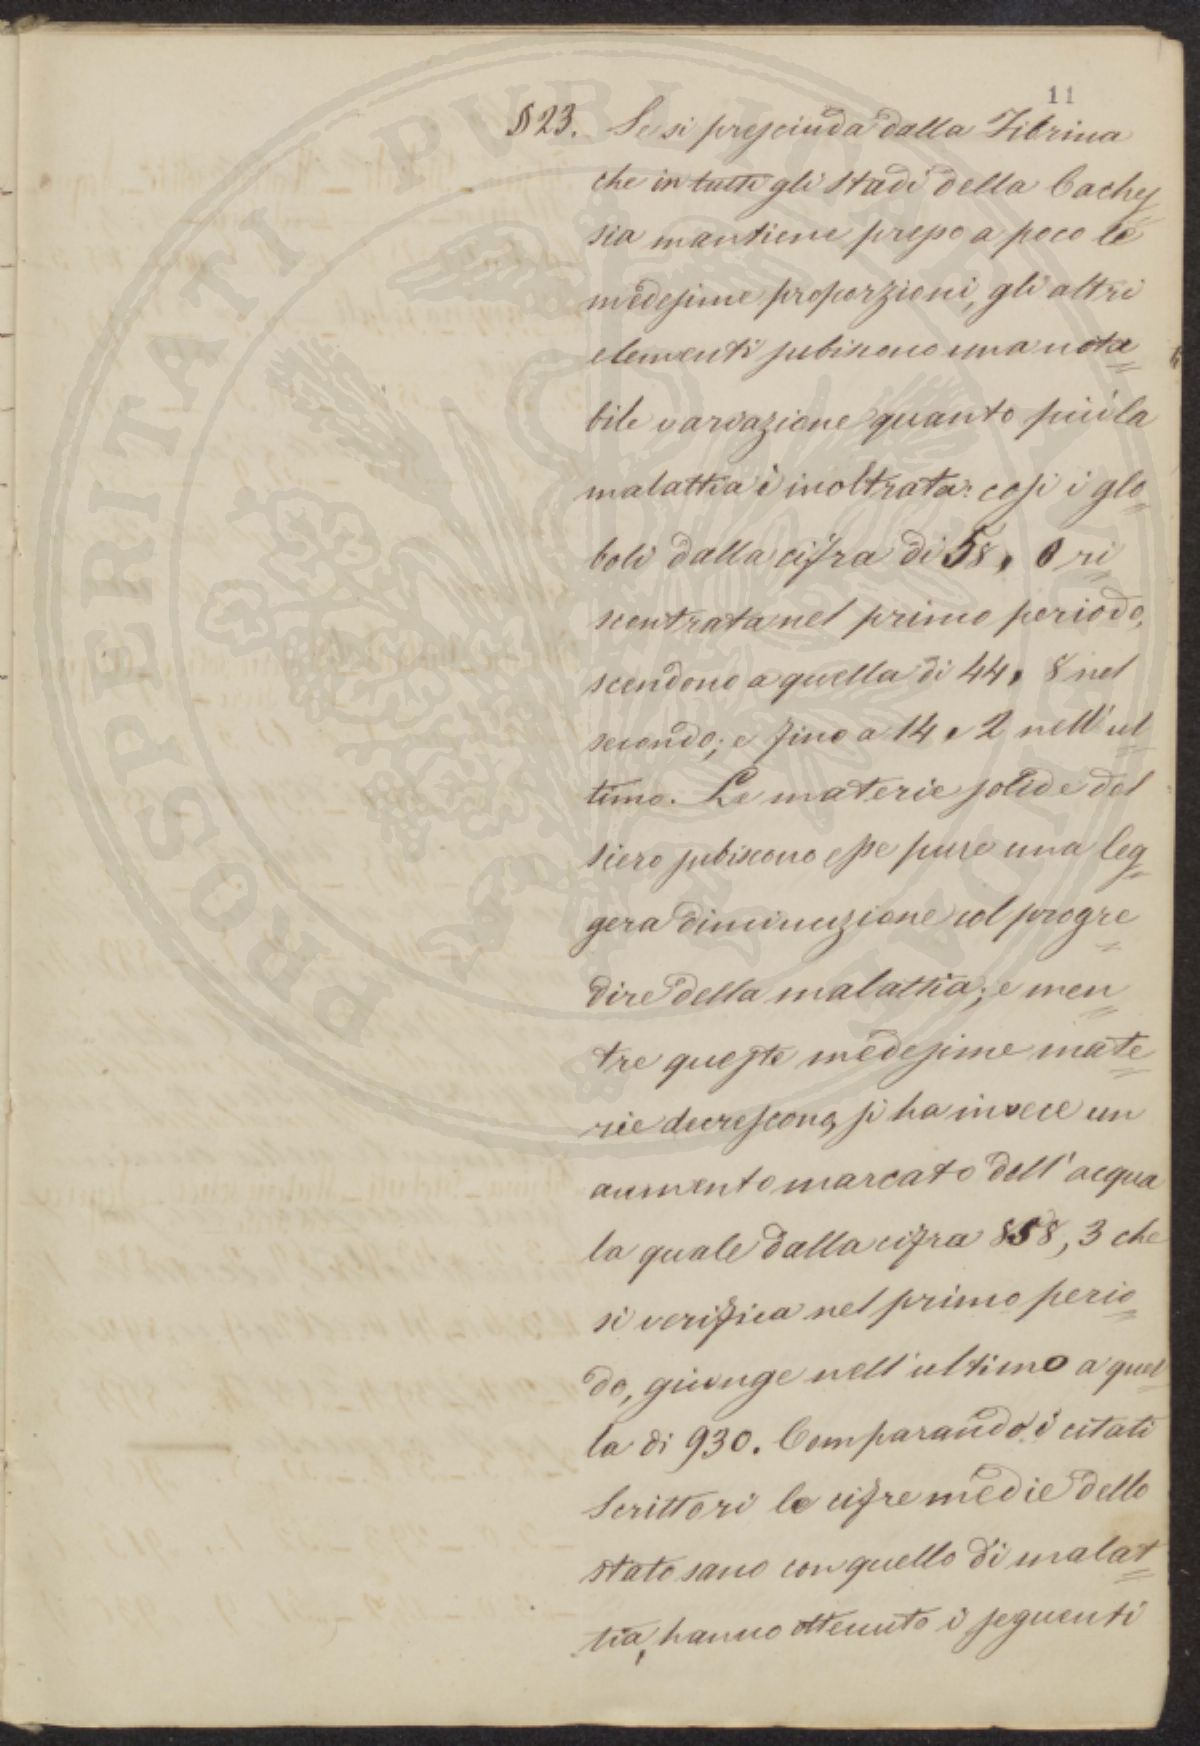 11
§ 23. Se si prescinda dalla Fibrina
che in tutti gli stadi della Cachey
sia mantiene presso a poco le
medesime proporzioni, gli altri
elementi subiscono una nota
bile variazione quanto più la
malattia è inoltrata: così i glo
boli dalla cifra di 58, 0 ri
scontrata nel primo periodo,
scendono a quella di 44, 8 nel
secondo; e fino a 14, 2 nell'ul
timo. Le materie solide del
siero subiscono esse pure una leg
gera diminuzione col progre
dire della malattia; e men
tre queste medesime mate
rie decrescono, si ha invece un
aumento marcato dell'acqua
la quale dalla cifra 858, 3 che
si verifica nel primo perio
do, giunge nell'ultimo a quel
la di 930. Comparando i citati
Scrittori le cifre medie dello
stato sano con quello di malat
tia, hanno ottenuto i seguenti
PROSPERITATI PUBLICAE